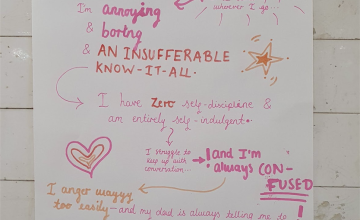 I'm annoying
wherever I go...
& boring
& AN INSUFFERABLE
KNOW-IT-ALL.
I have zero self-discipline &
am entirely self-indulgent.
I struggle to
keep up with
conversation—
! and I'm
always CON-
FUSED
!
I anger wayyy
too easily—and my dad is always telling me to